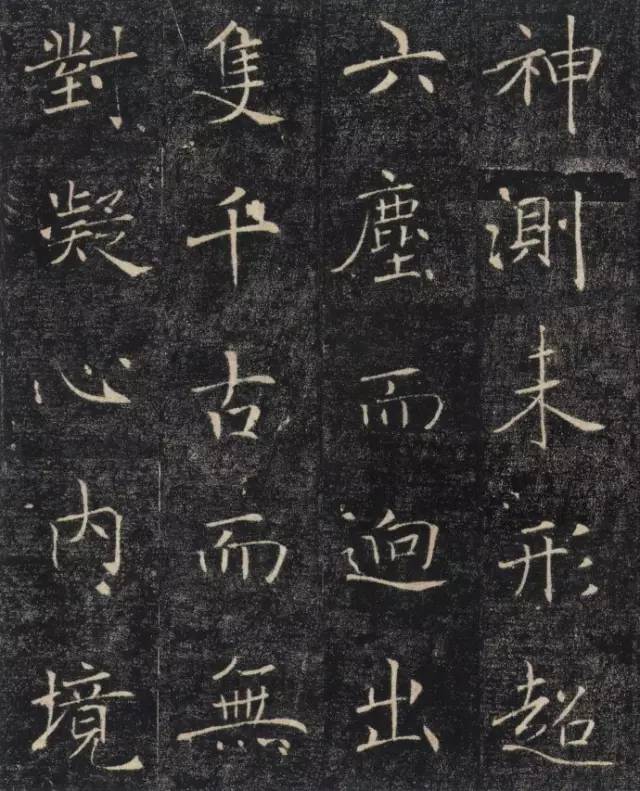 神測未形超
六塵而逈出
隻千古而無
對凝心內境